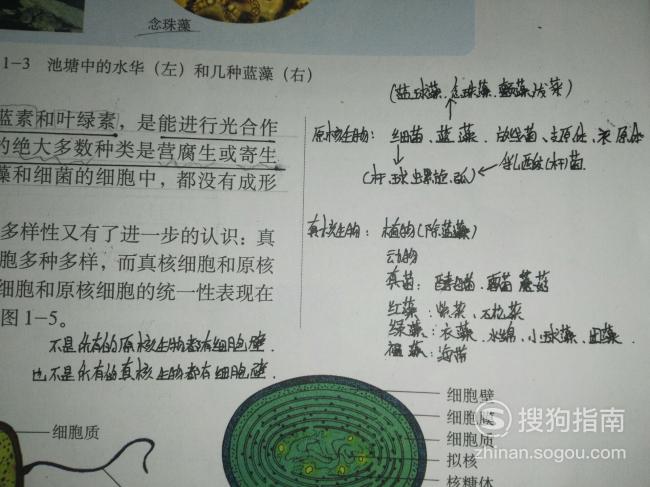 念珠藻
1-3 池塘中的水华（左）和几种蓝藻（右）
(蓝球藻、念珠藻、颤藻、发菜)
蓝素和叶绿素，是能进行光合作
原核生物：细菌、蓝藻、放线菌、支原体、衣原体
的绝大多数种类是营腐生或寄生
(杆、球、螺旋、弧) 乳酸(杆)菌.
藻和细菌的细胞中，都没有成形
多样性又有了进一步的认识：真
真核生物：植物(除蓝藻)
动物
胞多种多样，而真核细胞和原核
真菌：酵母菌、霉菌 蘑菇
细胞和原核细胞的统一性表现在
红藻：紫菜、石花菜
图1-5。
绿藻：衣藻、水绵、小球藻、团藻.
褐藻：海带
不是所有的原核生物都有细胞壁.
也不是所有的真核生物都有细胞壁.
细胞壁
细胞膜
细胞质
细胞质
拟核
核糖体
搜狗指南
zhinan.sogou.com